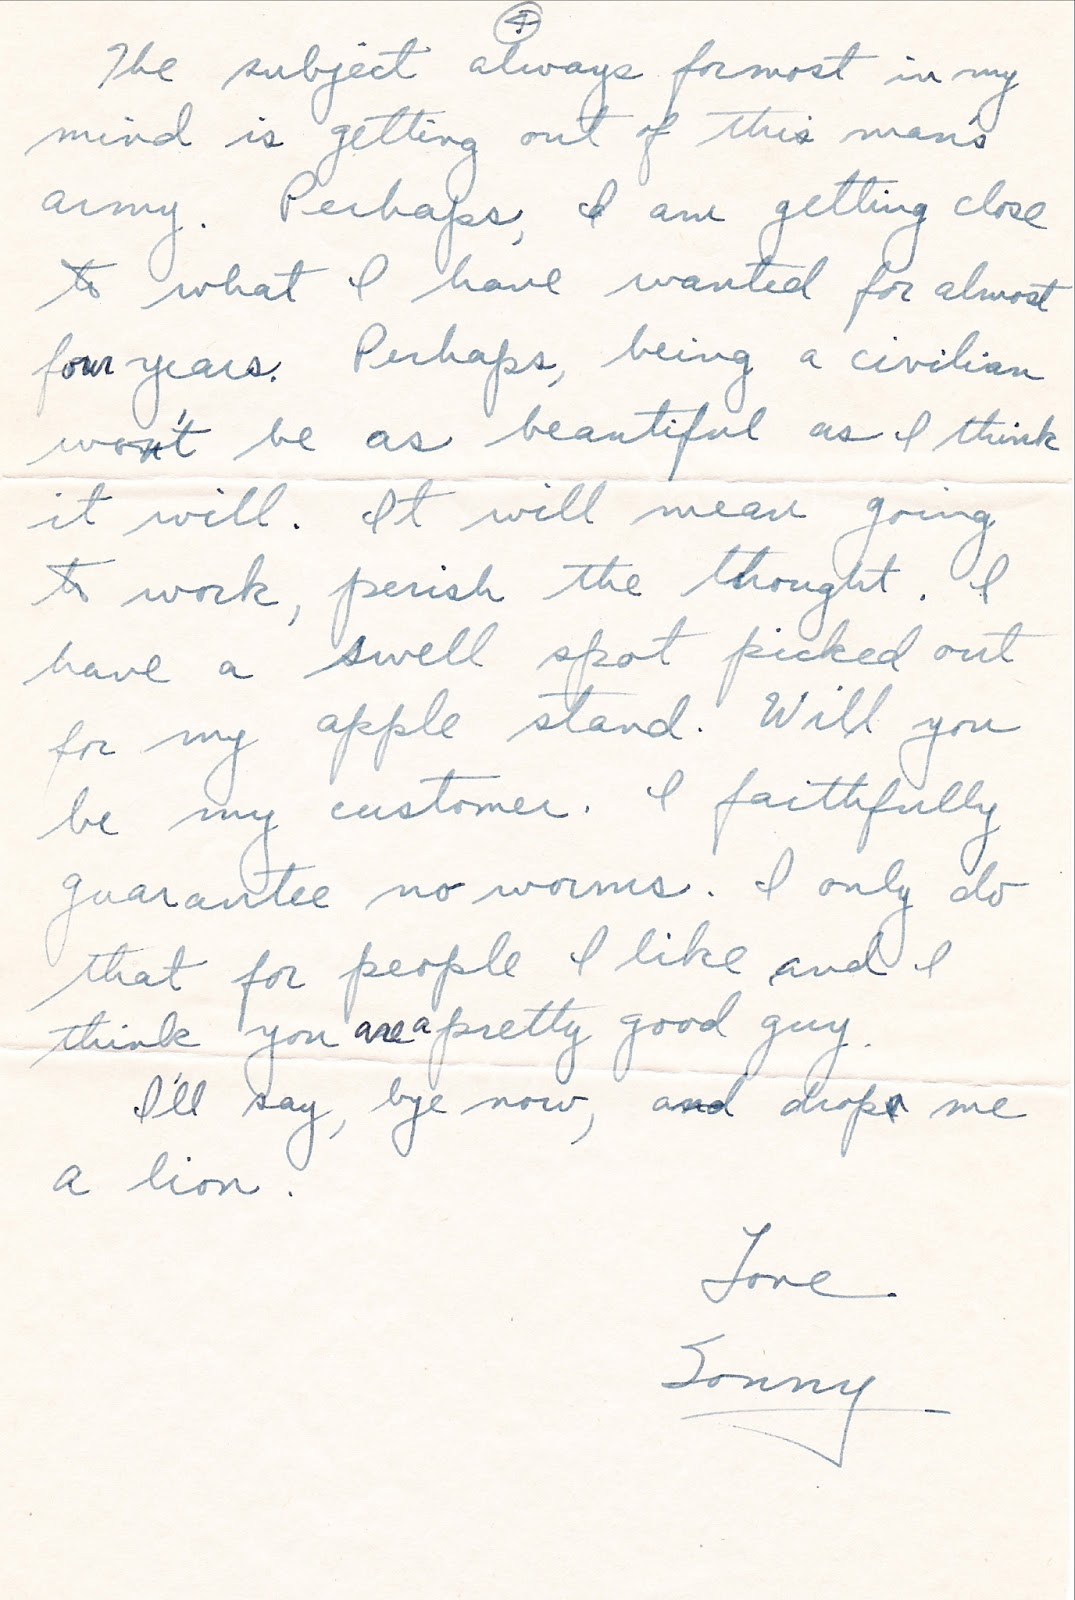 4
The subject always formost in my
mind is getting out of this man's
army. Perhaps, I am getting close
to what I have wanted for almost
four years. Perhaps, being a civilian
won't be as beautiful as I think
it will. It will mean going
to work, perish the thought. I
have a swell spot picked out
for my apple stand. Will you
be my customer. I faithfully
guarantee no worms. I only do
that for people I like and I
think you are a pretty good guy.
I'll say, bye now, and drop me
a lion.
Love.
Sonny